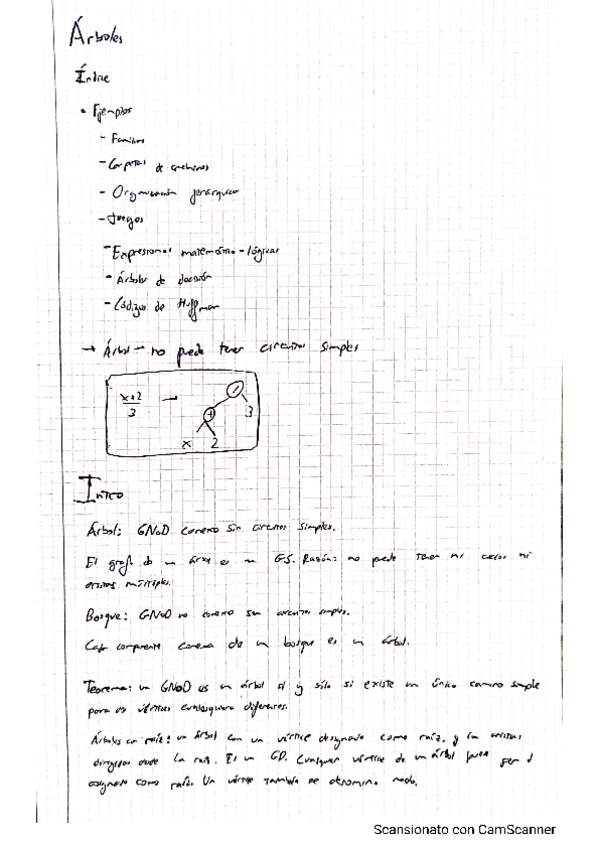 Árboles
Índice
• Ejemplos
- Familias
- Carpetas de archivos
- Organización jerárquica
- Juegos
- Expresiones matemático-lógicas
- Árboles de decisión
- Códigos de Huffman
→ Árbol → no puede tener circuitos simples
x+2
3
→
/
+
3
x 2
Intro
Árbol: GNoD conexo sin circuitos simples.
El grafo de un árbol es un GS. Razón: no puede tener ni ciclos ni
aristas múltiples.
Bosque: GNoD no conexo sin circuitos simples.
Cada componente conexa de un bosque es un árbol.
Teorema: un GNoD es un árbol si y sólo si existe un único camino simple
para dos vértices cualesquiera diferentes.
Árboles con raíz: un árbol con un vértice designado como raíz, y las aristas
dirigidas desde la raíz. Es un GD. Cualquier vértice de un árbol puede ser
designado como raíz. Un vértice también se denomina nodo.
Scansionato con CamScanner